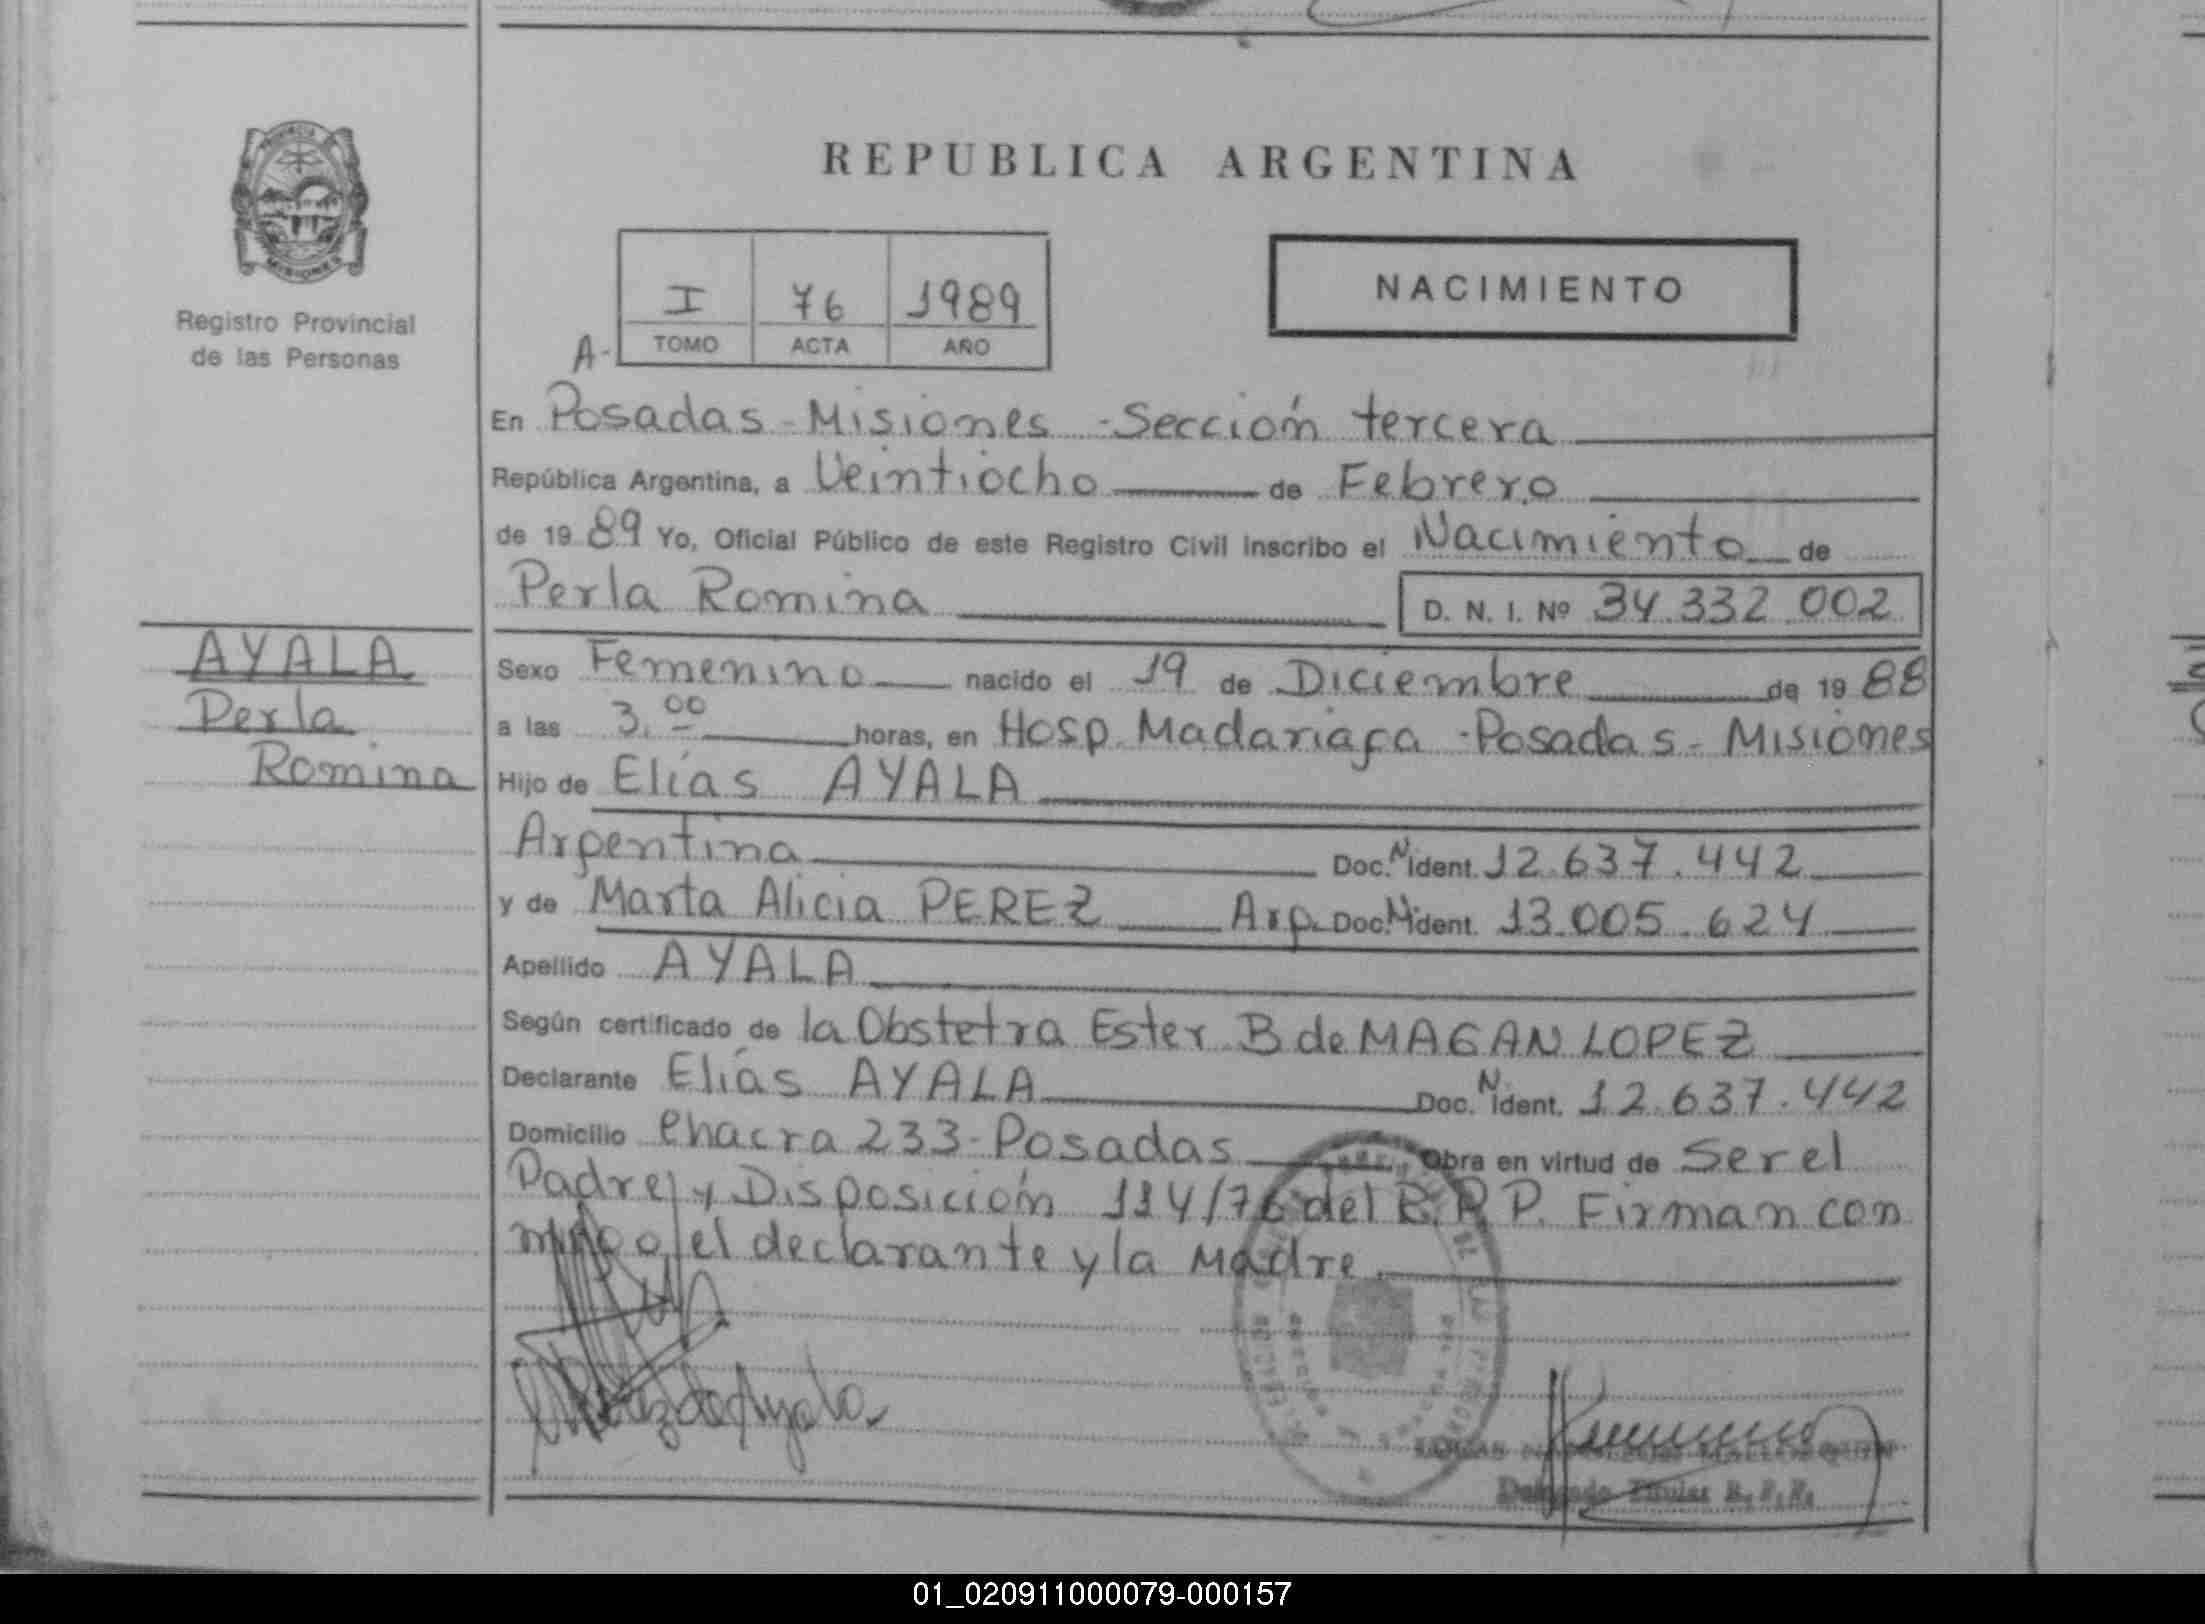 REPUBLICA ARGENTINA
PROVINCIA
MISIONES
Registro Provincial
de las Personas
NACIMIENTO
I 76 1989
A- TOMO ACTA AÑO
En Posadas - Misiones - Sección tercera
República Argentina, a Veintiocho de Febrero
de 19 89 Yo, Oficial Público de este Registro Civil inscribo el Nacimiento de
Perla Romina D. N. I. Nº 34.332.002
AYALA
Perla
Romina
Sexo Femenino nacido el 19 de Diciembre de 19 88
a las 3.00 horas, en Hosp. Madariaga - Posadas - Misiones
Hijo de Elías AYALA
Argentina Doc. N ident. 12.637.442
y de Marta Alicia PEREZ Arg. Doc. N ident. 13.005.624
Apellido AYALA
Según certificado de la Obstetra Ester B de MAGAN LOPEZ
Declarante Elías AYALA Doc. N ident. 12.637.442
Domicilio Chacra 233 - Posadas Obra en virtud de Ser el
Padre y Disposición 114/76 del R.P.P. Firman con
migo el declarante y la Madre
Perez de Ayala
Delegado Titular R.P.P.
01_020911000079-000157